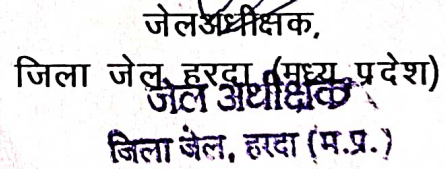 जेलअधीक्षक,
जिला जेल हरदा (मध्य प्रदेश)
जेल अधीक्षक
जिला जेल, हरदा (म.प्र.)